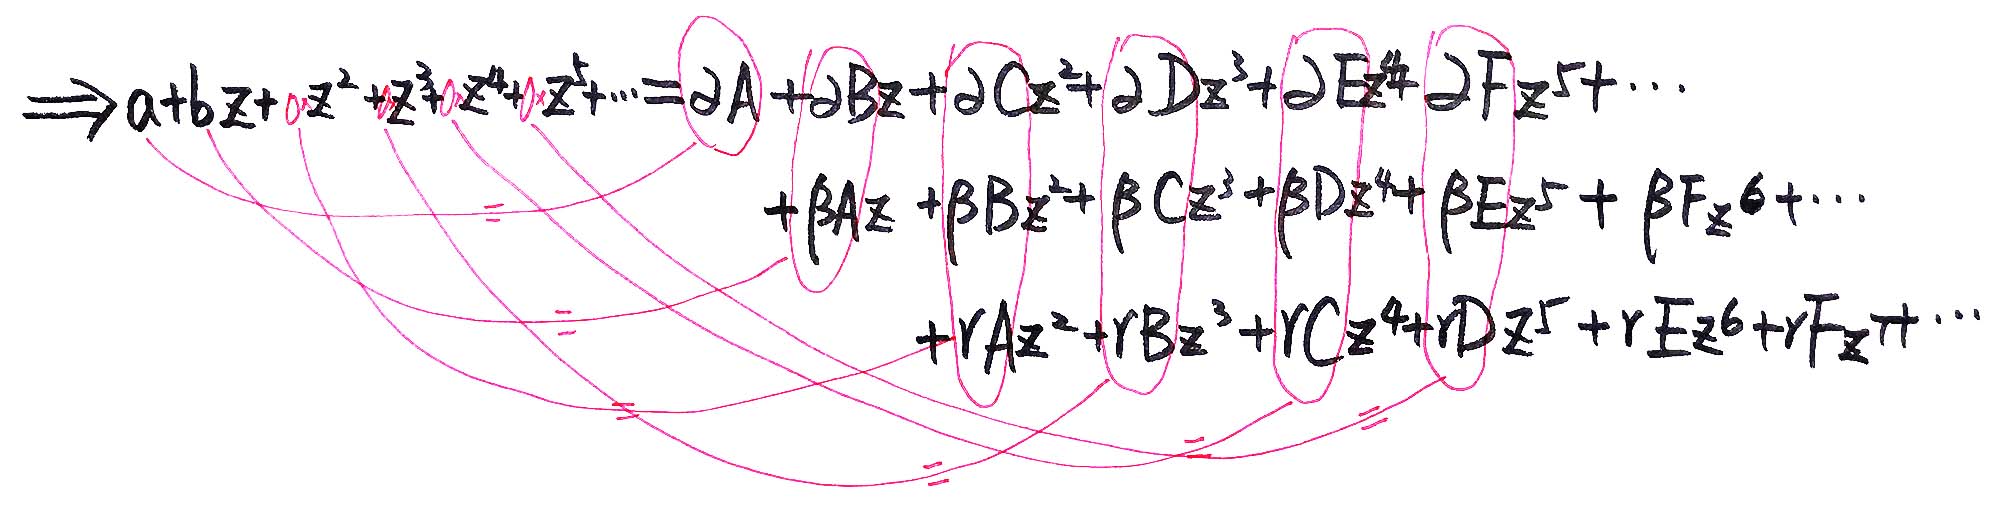 ⟹ a+bz+0×z²+0×z³+0×z⁴+0×z⁵+⋯=∂A+∂Bz+∂Cz²+∂Dz³+∂Ez⁴+∂Fz⁵+⋯
+βAz+βBz²+βCz³+βDz⁴+βEz⁵+βFz⁶+⋯
+rAz²+rBz³+rCz⁴+rDz⁵+rEz⁶+rFz⁷+⋯